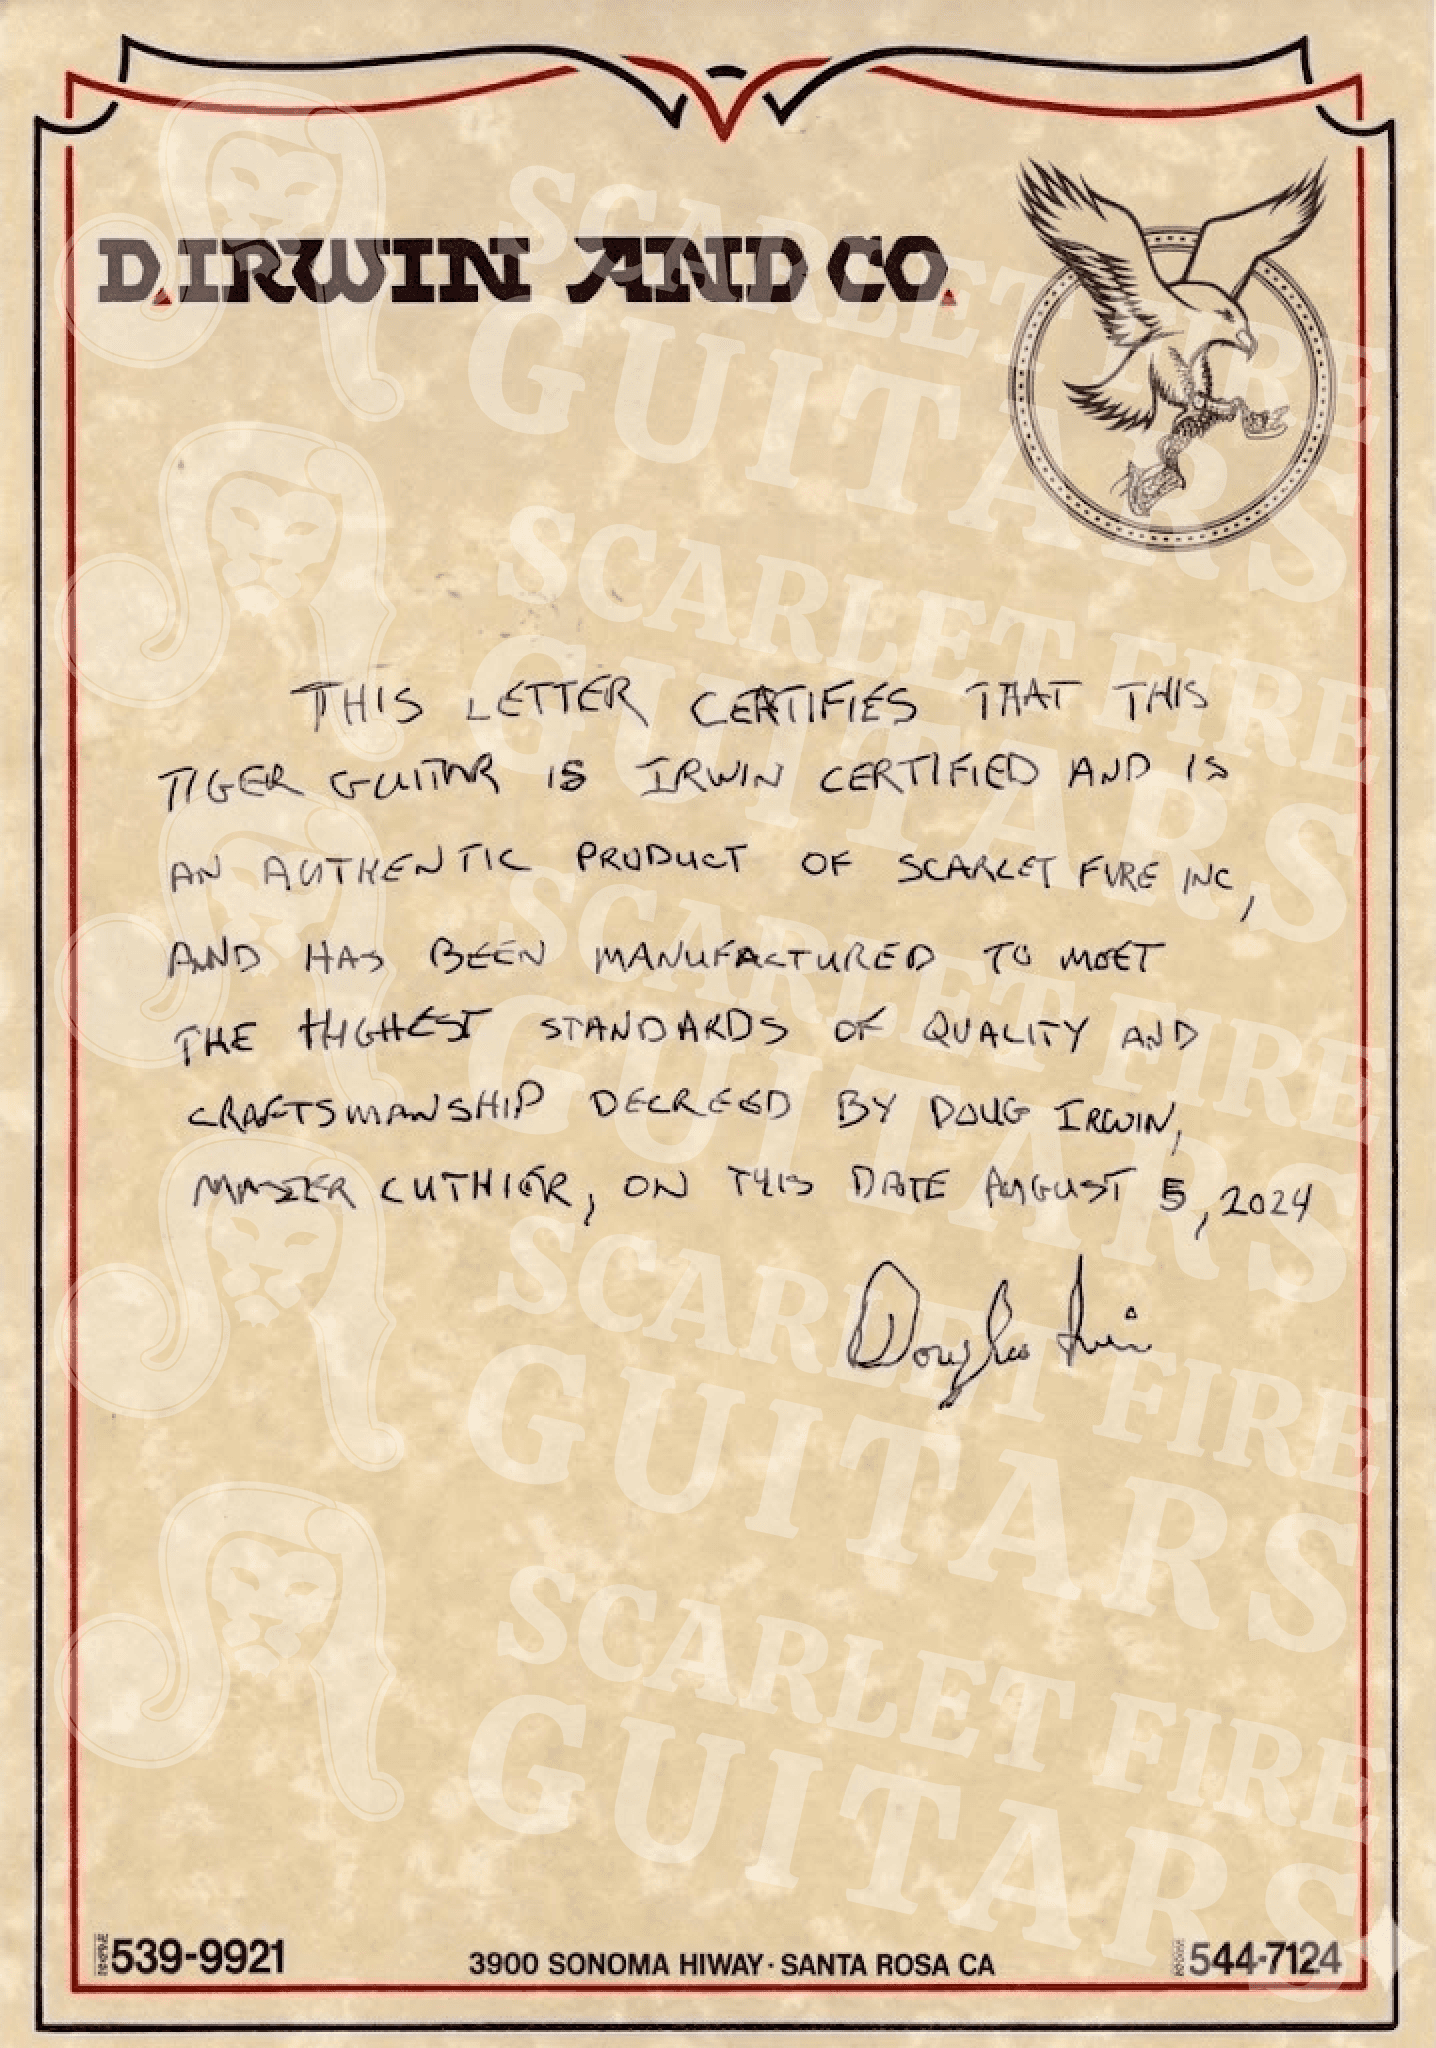 D. IRWIN AND CO.
THIS LETTER CERTIFIES THAT THIS
TIGER GUITAR IS IRWIN CERTIFIED AND IS
AN AUTHENTIC PRODUCT OF SCARLET FIRE INC,
AND HAS BEEN MANUFACTURED TO MEET
THE HIGHEST STANDARDS OF QUALITY AND
CRAFTSMANSHIP DECREED BY DOUG IRWIN,
MASTER LUTHIER, ON THIS DATE AUGUST 5, 2024
Douglas Irwin
539-9921
3900 SONOMA HIWAY · SANTA ROSA CA
544-7124
SCARLET FIRE
GUITARS
SCARLET FIRE
GUITARS
SCARLET FIRE
GUITARS
SCARLET FIRE
GUITARS
SCARLET FIRE
GUITARS